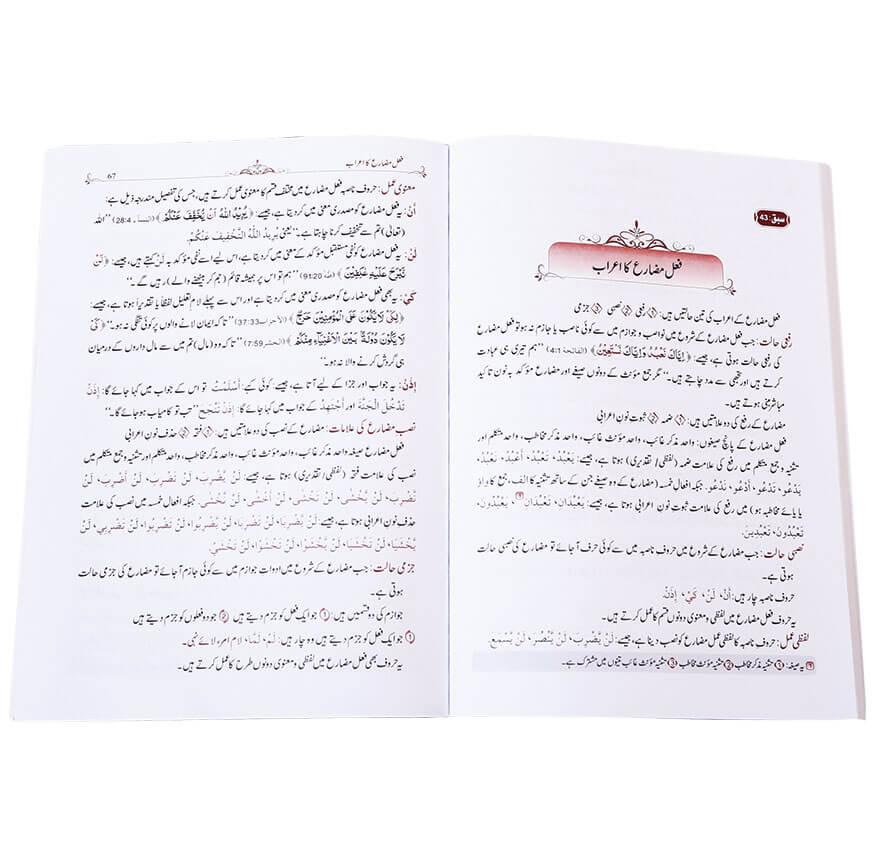 سبق: 43
فعل مضارع کا اعراب
فعل مضارع کے اعراب کی تین حالتیں ہیں: ① رفعی ② نصبی ③ جزمی
رفعی حالت: جب فعل مضارع کے شروع میں نواصب و جوازم میں سے کوئی ناصب یا جازم نہ ہو تو فعل مضارع
کی رفعی حالت ہوتی ہے، جیسے: ﴿إِيَّاكَ نَعْبُدُ وَإِيَّاكَ نَسْتَعِينُ﴾ (الفاتحة 4:1) ”ہم تیری ہی عبادت
کرتے ہیں اور تجھی سے مدد چاہتے ہیں۔“ مگر جمع مؤنث کے دونوں صیغے اور مضارع مؤکد بہ نون تاکید
مباشر مبنی ہوتے ہیں۔
مضارع کے رفع کی دو علامتیں ہیں: ① ضمہ ② ثبوت نون اعرابی
فعل مضارع کے پانچ صیغوں: واحد مذکر غائب، واحد مؤنث غائب، واحد مذکر مخاطب، واحد متکلم اور
تثنیہ و جمع متکلم میں رفع کی علامت ضمہ (لفظی/ تقدیری) ہوتا ہے، جیسے: يَعْبُدُ، تَعْبُدُ، أَعْبُدُ، نَعْبُدُ،
يَدْعُو، تَدْعُو، أَدْعُو، نَدْعُو. جبکہ افعال خمسہ (مضارع کے وہ صیغے جن کے ساتھ تثنیہ کا الف، جمع کا واؤ
یا یائے مخاطبہ ہو) میں رفع کی علامت ثبوت نون اعرابی ہوتا ہے، جیسے: يَعْبُدَانِ، تَعْبُدَانِ، يَعْبُدُونَ،
تَعْبُدُونَ، تَعْبُدِينَ.
نصبی حالت: جب مضارع کے شروع میں حروف ناصبہ میں سے کوئی حرف آجائے تو مضارع کی نصبی حالت
ہوتی ہے۔
حروف ناصبہ چار ہیں: أَنْ، لَنْ، كَيْ، إِذَنْ.
یہ حروف فعل مضارع میں لفظی و معنوی دونوں قسم کا عمل کرتے ہیں۔
لفظی عمل: حروف ناصبہ کا لفظی عمل مضارع کو نصب دینا ہے، جیسے: لَنْ يَّضْرِبَ، لَنْ يَّنْصُرَ، لَنْ يَّسْمَعَ.
یہ صیغہ: ① تثنیہ مذکر مخاطب ② تثنیہ مؤنث مخاطب ③ تثنیہ مؤنث غائب تینوں میں مشترک ہے۔
فعل مضارع کا اعراب 67
معنوی عمل: حروف ناصبہ فعل مضارع میں مختلف قسم کا معنوی عمل کرتے ہیں، جس کی تفصیل مندرجہ ذیل ہے:
أَنْ: یہ فعل مضارع کو مصدری معنی میں کر دیتا ہے، جیسے: ﴿يُرِيدُ اللَّهُ أَنْ يُّخَفِّفَ عَنْكُمْ﴾ (النساء 28:4) ”اللہ
(تعالیٰ) تم سے تخفیف کرنا چاہتا ہے۔“ یعنی يُرِيدُ اللَّهُ التَّخْفِيفَ عَنْكُمْ.
لَنْ: یہ فعل مضارع کو نفی مستقبل مؤکد کے معنی میں کر دیتا ہے، اس لیے اسے نفی مؤکد بہ لَنْ کہتے ہیں، جیسے: ﴿لَنْ
نَّبْرَحَ عَلَيْهِ عَاكِفِينَ﴾ (طه 91:20) ”ہم تو اس پر ہمیشہ قائم (جم کر بیٹھنے والے) رہیں گے۔“
كَيْ: یہ بھی فعل مضارع کو مصدری معنی میں کر دیتا ہے اور اس سے پہلے لام تعلیل لفظاً یا تقدیراً ہوتا ہے، جیسے:
﴿لِكَيْ لَا يَكُونَ عَلَى الْمُؤْمِنِينَ حَرَجٌ﴾ (الأحزاب 37:33) ”تاکہ ایمان لانے والوں پر کوئی تنگی نہ ہو۔“ ﴿كَيْ
لَا يَكُونَ دُولَةً بَيْنَ الْأَغْنِيَاءِ مِنْكُمْ﴾ (الحشر 7:59) ”تاکہ وہ (مال) تم میں سے مال داروں کے درمیان
ہی گردش کرنے والا نہ ہو۔“
إِذَنْ: یہ جواب اور جزا کے لیے آتا ہے، جیسے: کوئی کہے: أَسْلَمْتُ تو اس کے جواب میں کہا جائے گا: إِذَنْ
تَدْخُلَ الْجَنَّةَ اور أَجْتَهِدُ کے جواب میں کہا جائے گا: إِذَنْ تَنْجَحَ ”تب تو کامیاب ہو جائے گا۔“
نصب مضارع کی علامات: مضارع کے نصب کی دو علامتیں ہیں: ① فتحہ ② حذف نون اعرابی
فعل مضارع صیغہ واحد مذکر غائب، واحد مؤنث غائب، واحد مذکر مخاطب، واحد متکلم اور تثنیہ و جمع متکلم میں
نصب کی علامت فتحہ (لفظی/ تقدیری) ہوتا ہے، جیسے: لَنْ يَّضْرِبَ، لَنْ تَضْرِبَ، لَنْ أَضْرِبَ، لَنْ
نَّضْرِبَ، لَنْ يَّخْشٰى، لَنْ تَخْشٰى، لَنْ أَخْشٰى، لَنْ نَّخْشٰى. جبکہ افعال خمسہ میں نصب کی علامت
حذف نون اعرابی ہوتا ہے، جیسے: لَنْ يَّضْرِبَا، لَنْ تَضْرِبَا، لَنْ يَّضْرِبُوا، لَنْ تَضْرِبُوا، لَنْ تَضْرِبِي، لَنْ
يَّخْشَيَا، لَنْ تَخْشَيَا، لَنْ يَّخْشَوْا، لَنْ تَخْشَوْا، لَنْ تَخْشَيْ.
جزمی حالت: جب مضارع کے شروع میں ادوات جوازم میں سے کوئی جازم آجائے تو مضارع کی جزمی حالت
ہوتی ہے۔
جوازم کی دو قسمیں ہیں: ① جو ایک فعل کو جزم دیتے ہیں ② جو دو فعلوں کو جزم دیتے ہیں
① جو ایک فعل کو جزم دیتے ہیں وہ چار ہیں: لَمْ، لَمَّا، لام امر، لائے نہی۔
یہ حروف بھی فعل مضارع میں لفظی و معنوی دونوں طرح کا عمل کرتے ہیں۔